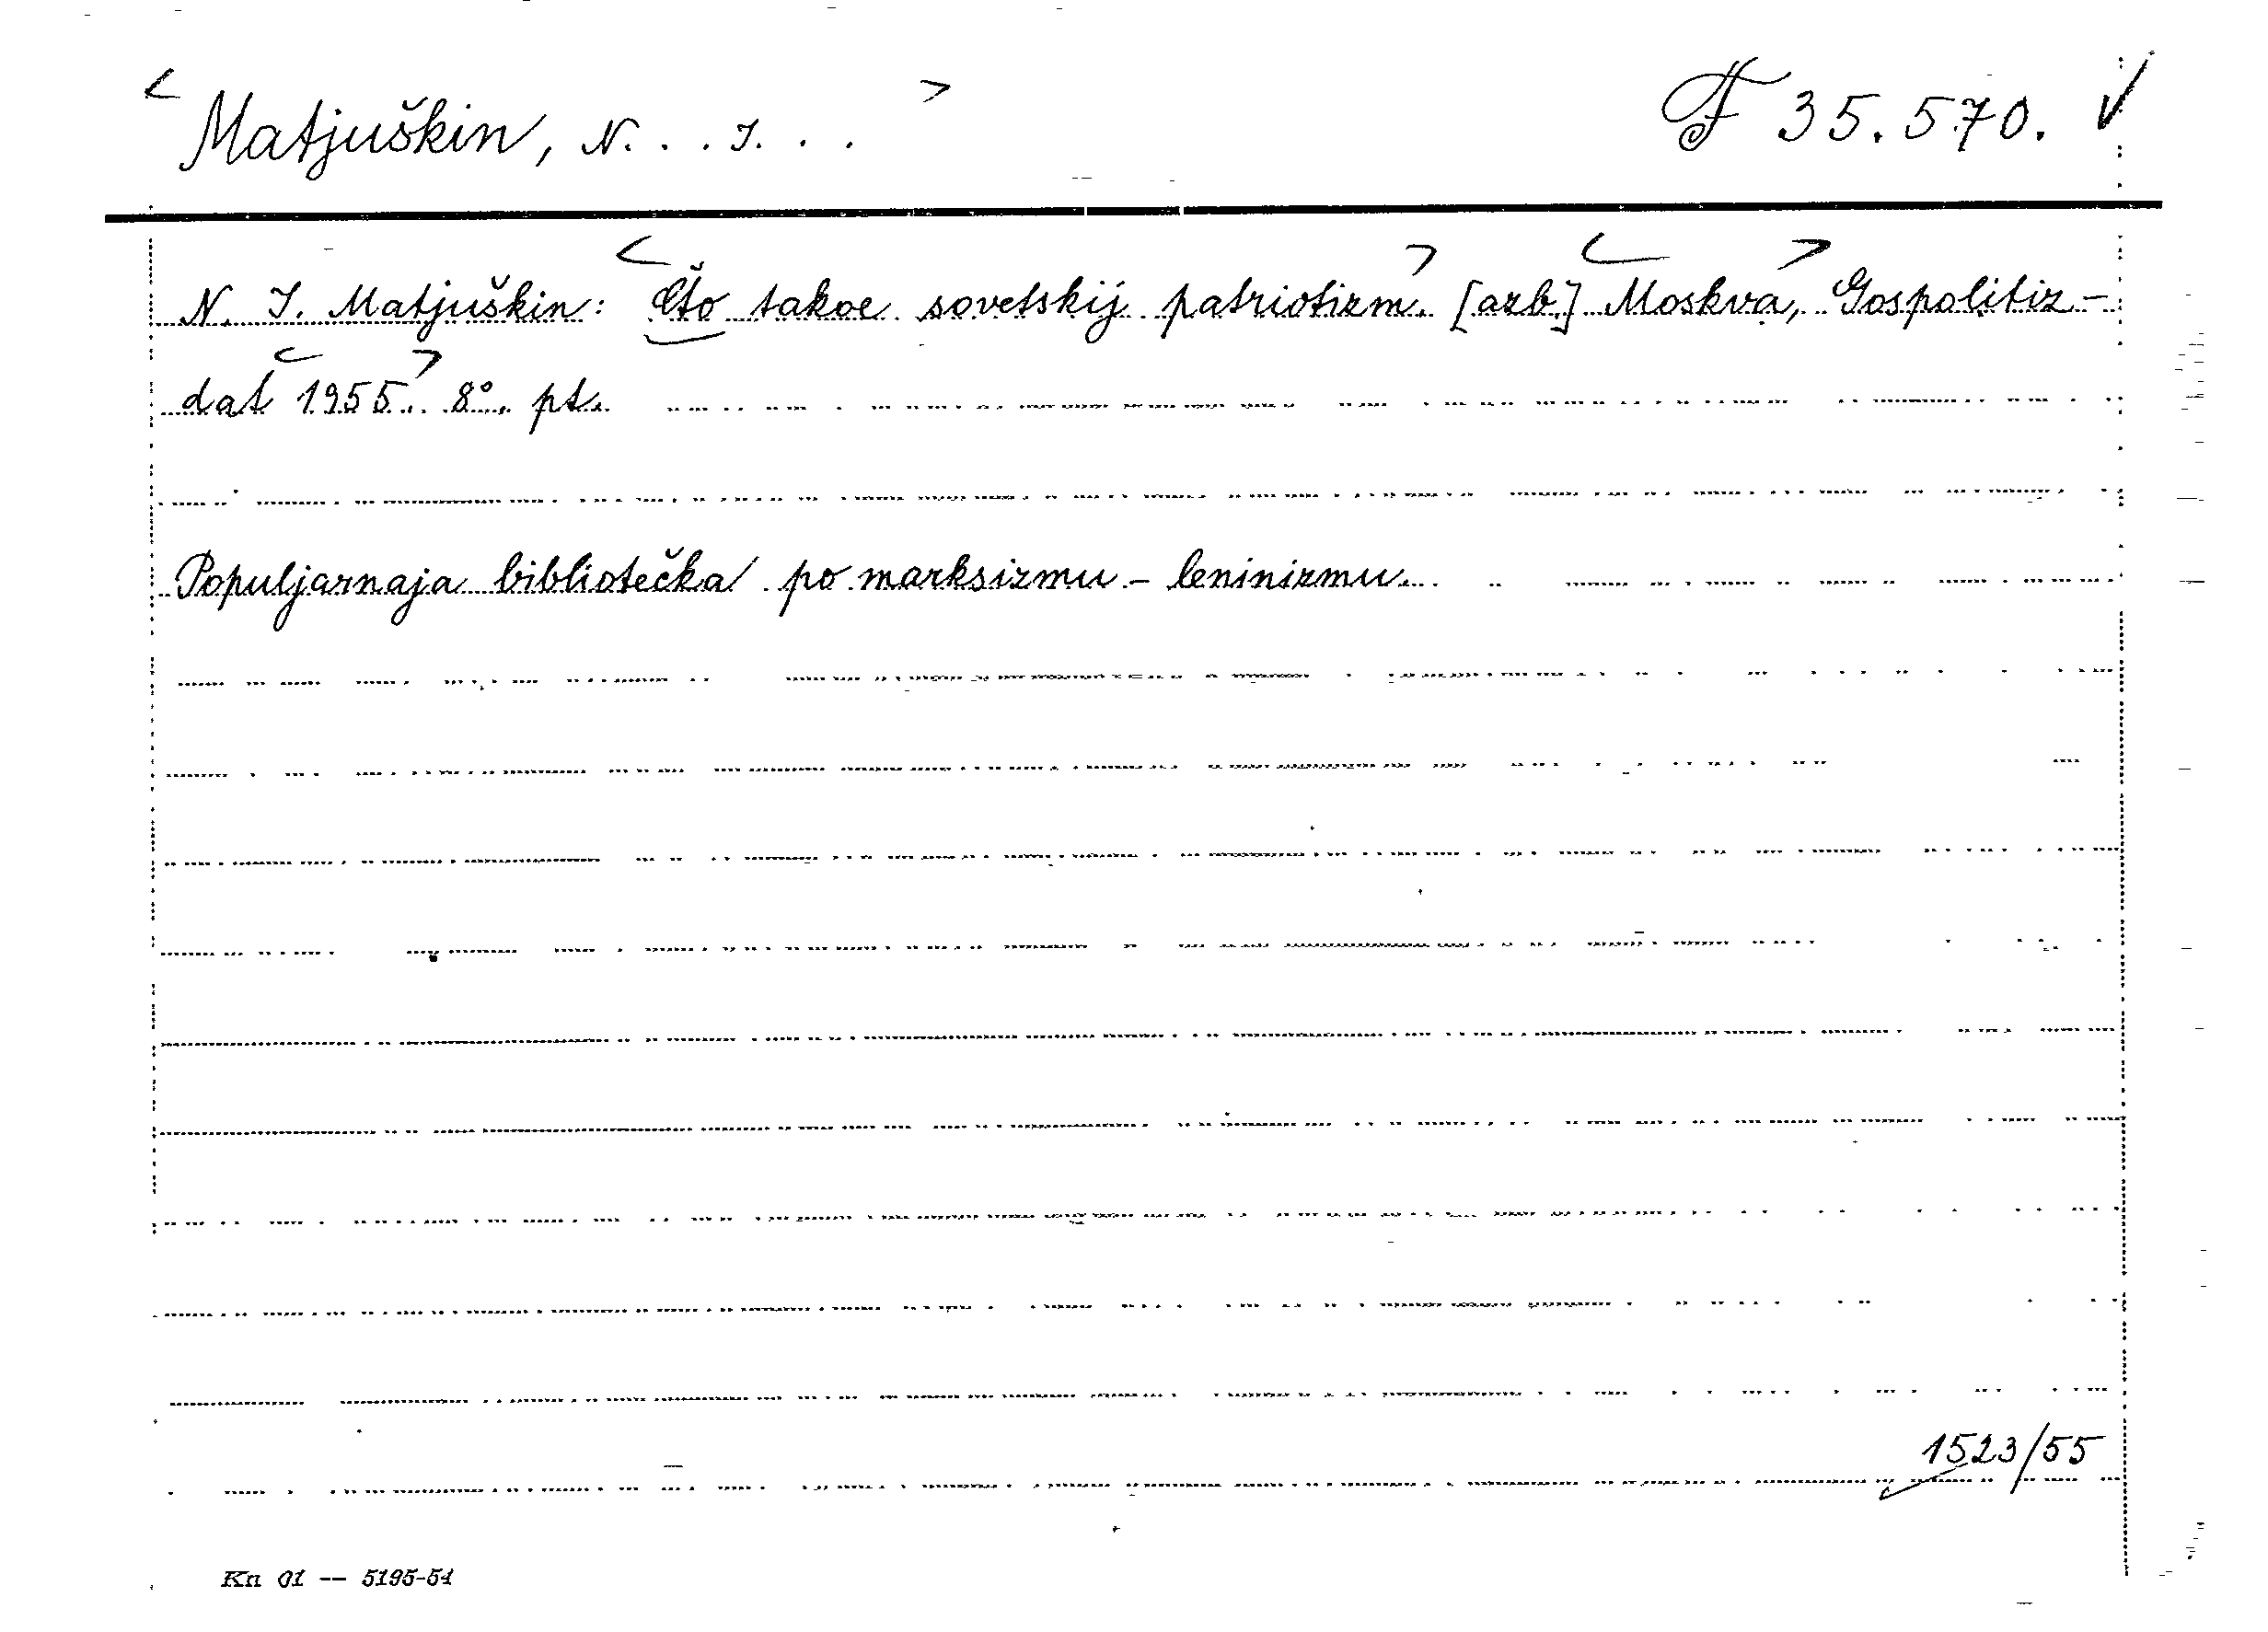 < Matjuškin, N. . . I. . . > F 35.570. √
N. I. Matjuškin: <Čto takoe sovetskij patriotizm.> [azb] <Moskva,> Gospolitiz-
dat <1955.> 8°. pt.
Populjarnaja bibliotečka po marksizmu - leninizmu.
1523/55
Kn 01 -- 5195-54